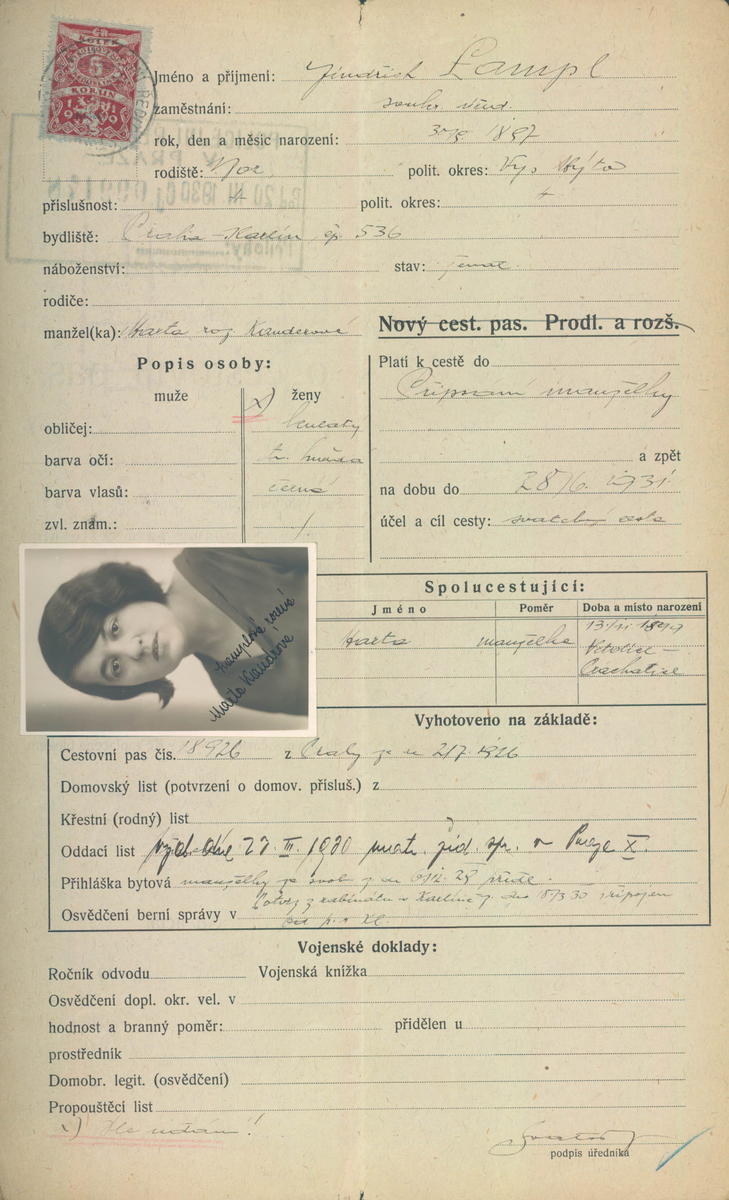 KOLEK
5
KORUN
Jméno a příjmení: Jindřich Lampl
zaměstnání: soukr. úřed.
rok, den a měsíc narození: 1897
rodiště: polit. okres: Vys. Mýto
příslušnost: + polit. okres: +
bydliště: Praha-Karlín čp. 536
náboženství: stav: ženat
rodiče:
manžel(ka): Marta roz.
Nový cest. pas. Prodl. a rozš.
Popis osoby:
muže ženy
x)
obličej: kulatý
barva očí: tm. hnědá
barva vlasů: černá
zvl. znam.: /
Platí k cestě do
Připsání manželky
a zpět
na dobu do 28/6. 1931
účel a cíl cesty: svatební cesta
Spolucestující:
Jméno Poměr Doba a místo narození
Marta manželka
Netolice-
Prachatice
Marta
Vyhotoveno na základě:
Cestovní pas čís. 18926 z Prahy ze dne 21/7. 1926
Domovský list (potvrzení o domov. přísluš.) z
Křestní (rodný) list
Oddací list 23. III. 1930 matr. žid. v Praze X.
Přihláška bytová manželky
Osvědčení berní správy v
Potvrz. z rabinátu v Karlíně připojen
Vojenské doklady:
Ročník odvodu Vojenská knížka
Osvědčení dopl. okr. vel. v
hodnost a branný poměr: přidělen u
prostředník
Domobr. legit. (osvědčení)
Propouštěcí list
x) Dle udání!
podpis úředníka